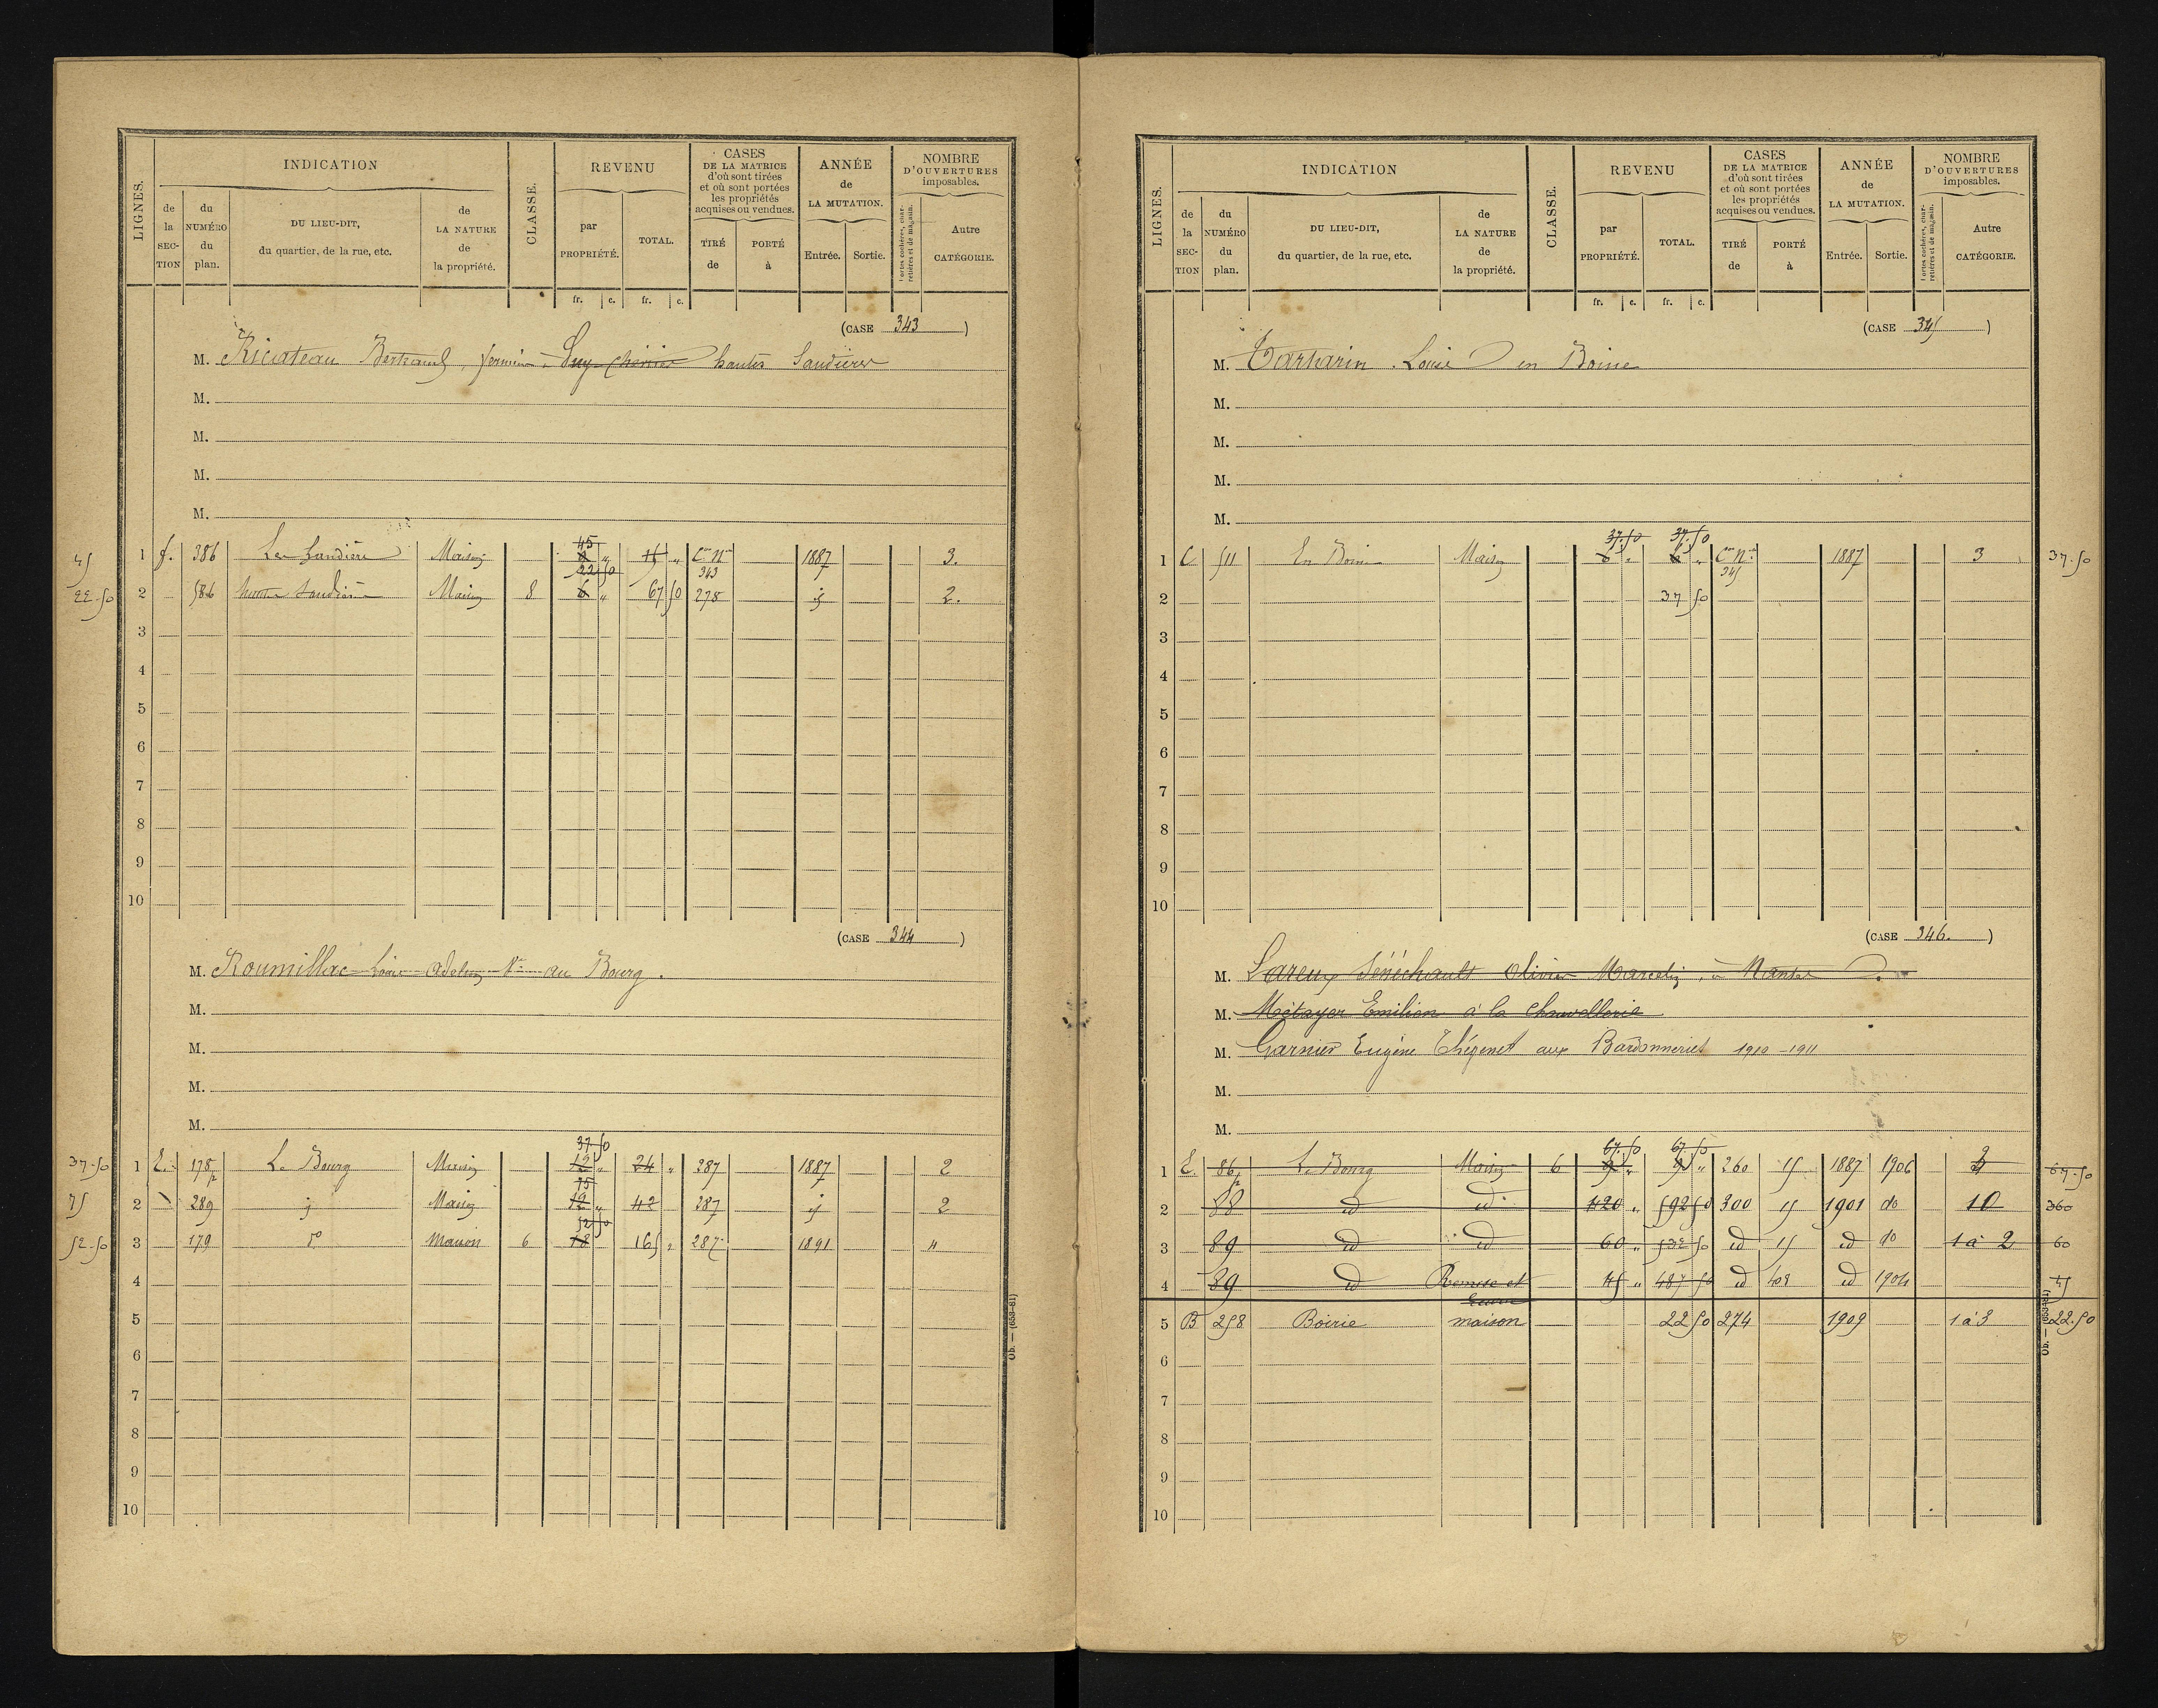 LIGNES.
INDICATION
de la SECTION
du NUMÉRO du plan.
DU LIEU-DIT, du quartier, de la rue, etc.
de LA NATURE de la propriété.
CLASSE.
REVENU
par PROPRIÉTÉ.
TOTAL.
CASES
DE LA MATRICE
d'où sont tirées
et où sont portées
les propriétés
acquises ou vendues.
TIRÉ de
PORTÉ à
ANNÉE
de
LA MUTATION.
Entrée. Sortie.
NOMBRE
D'OUVERTURES
imposables.
Portes cochères, charretières et de magasin.
Autre CATÉGORIE.
fr. c. fr. c.
(CASE 343)
M. Ricateau Bertrand, hautes Landières
M.
M.
M.
M.
45 1 386 Maison 45 C^on N^le 343 1887 3.
22.50 2 586 Maison 8 22 50 6 " 67 50 278 2.
3
4
5
6
7
8
9
10
(CASE 344)
M. Roumillac Louis au Bourg.
M.
M.
M.
M.
37.50 1 E. 178p Le Bourg Maison 37.50 12 " 24 " 287 1887 2
75 2 289 Maison 75 12 " 42 287 2
52.50 3 179 d° Maison 6 52 50 18 165 " 287 1891 "
4
5
6
7
8
9
10
Ob. — (653-81)
LIGNES.
INDICATION
de la SECTION
du NUMÉRO du plan.
DU LIEU-DIT, du quartier, de la rue, etc.
de LA NATURE de la propriété.
CLASSE.
REVENU
par PROPRIÉTÉ.
TOTAL.
CASES
DE LA MATRICE
d'où sont tirées
et où sont portées
les propriétés
acquises ou vendues.
TIRÉ de
PORTÉ à
ANNÉE
de
LA MUTATION.
Entrée. Sortie.
NOMBRE
D'OUVERTURES
imposables.
Portes cochères, charretières et de magasin.
Autre CATÉGORIE.
fr. c. fr. c.
(CASE 345)
M. Tartarin Louis en Boine
M.
M.
M.
M.
1 C 511 En Boine Maison 37.50 37.50 C^on N^le 345 1887 3 37.50
2 37 50
3
4
5
6
7
8
9
10
(CASE 346.)
M. Lareux Sénéchault Olivier Marcelin, à Nantes
M. Métayer Emilien à la Chauvellerie
M. Garnier Eugène Thégenet aux Bardonneries 1910-1911
M.
M.
1 E. 86p Le Bourg Maison 6 67.50 9 " 67.50 9 " 260 15 1887 1906 2 67.50
2 88 id id 420 " 592 50 300 15 1901 do 10 360
3 89 id id 60 " 532 50 id 15 id do 1 à 2 60
4 89 id Remise et Ecurie 45 " 487 50 id 402 id 1904 45
5 B 258 Boirie maison 22 50 274 1909 1 à 3 22.50
6
7
8
9
10
Ob. — (653-81)